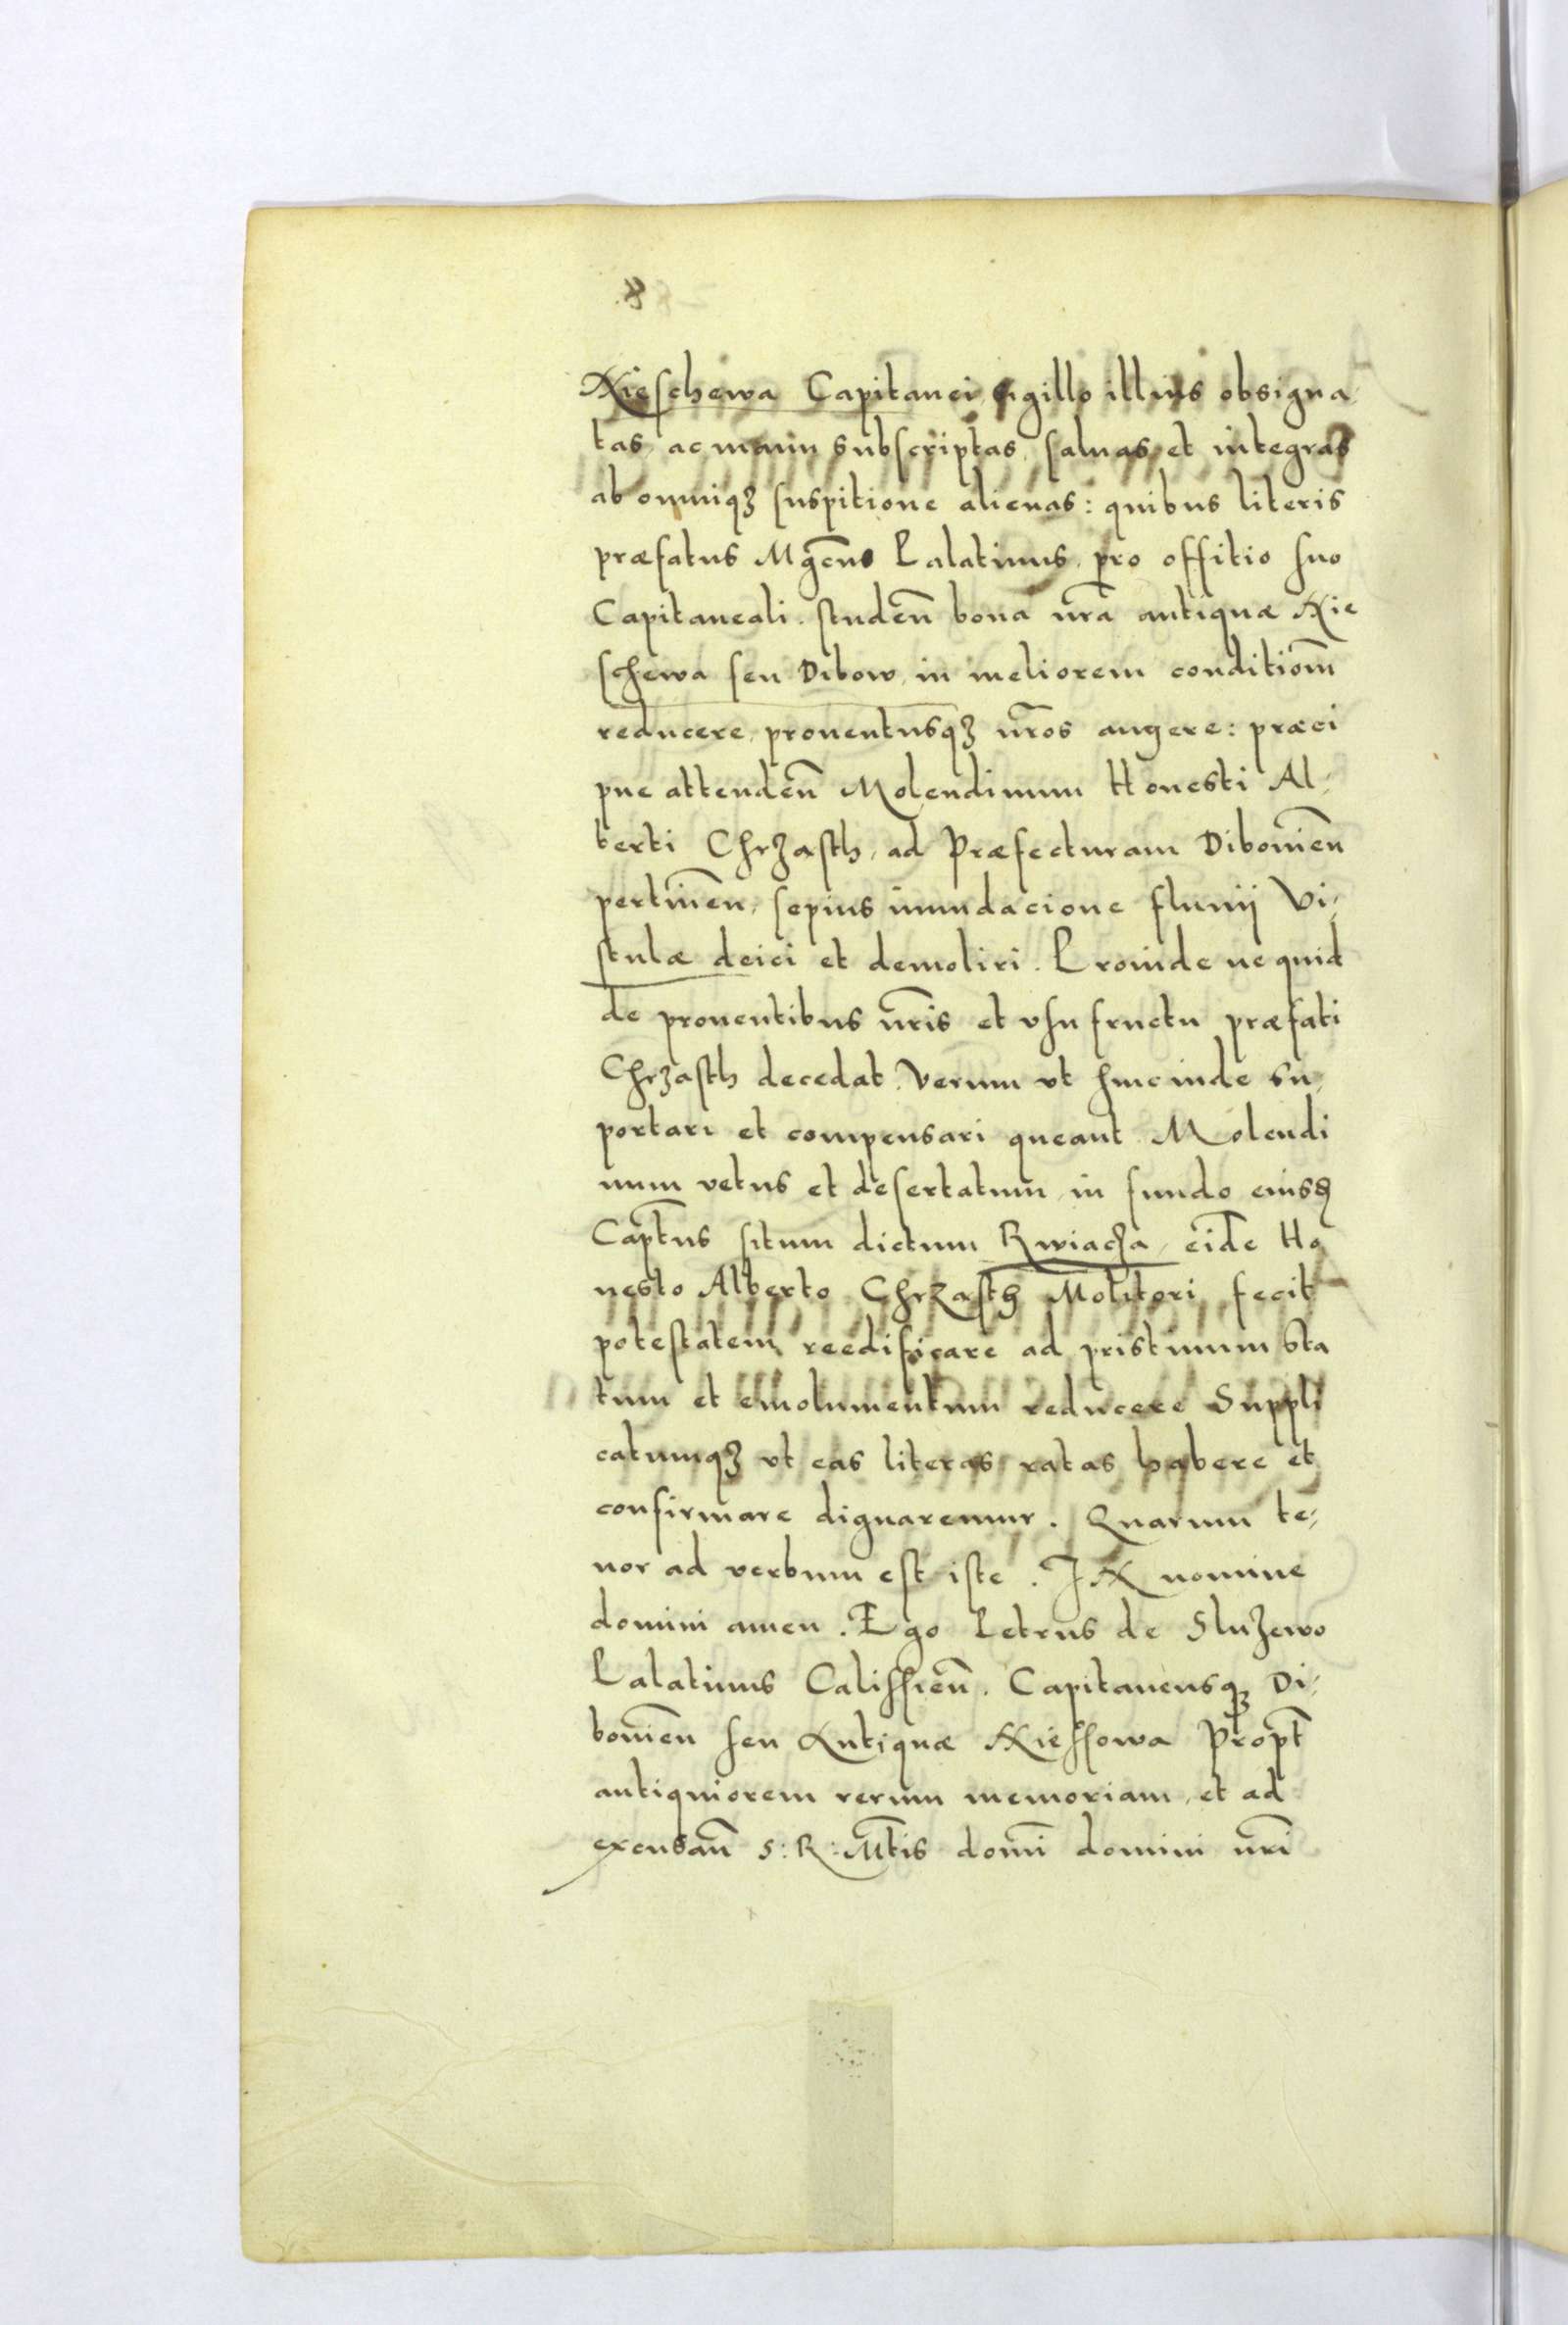 8
Nieschewa Capitanei, sigillo illius obsigna
tas, ac manu subscriptas, saluas et integras
ab omniqȝ suspitione alienas: quibus literis
præfatus Mgcus Palatinus, pro offitio suo
Capitaneali. studen̄ bona nr̄a antiquæ Nie
schewa seu Dibow, in meliorem conditiom̄
reducere, prouentusqȝ nr̄os augere: præci
pue attenden̄ Molendinum Honesti Al⸗
berti Chrząsth, ad Præfecturam Dibouien̄
pertinen̄, sepius inundacione fluuij Vi⸗
stulæ deici et demoliri. Proinde ne quid
de prouentibus nr̄is et vsufructu præfati
Chrząsth decedat. Verum vt hinc inde su,
portari et compensari queant. Molendi
num vetus et desertatum, in fundo eiusd
Captus situm dictum Rwiącza, eide Ho
nesto Alberto Chrząsth Molitori, fecit
potestatem, reedificare ad pristinum sta
tum et emolumentum reducere Suppli
catumqȝ vt eas literas ratas habere et
confirmare dignaremur. Quarum te⸗
nor ad verbum est iste. IN nomine
domini amen. Ego Petrus de Sluzewo
Palatinus Calissien̄. Capitaneusqȝ Di⸗
bouien̄ seu Antiquæ Niessowa Propt
antiquiorem rerum memoriam, et ad
excusan̄ S: R: Mtis domi domini nr̄i